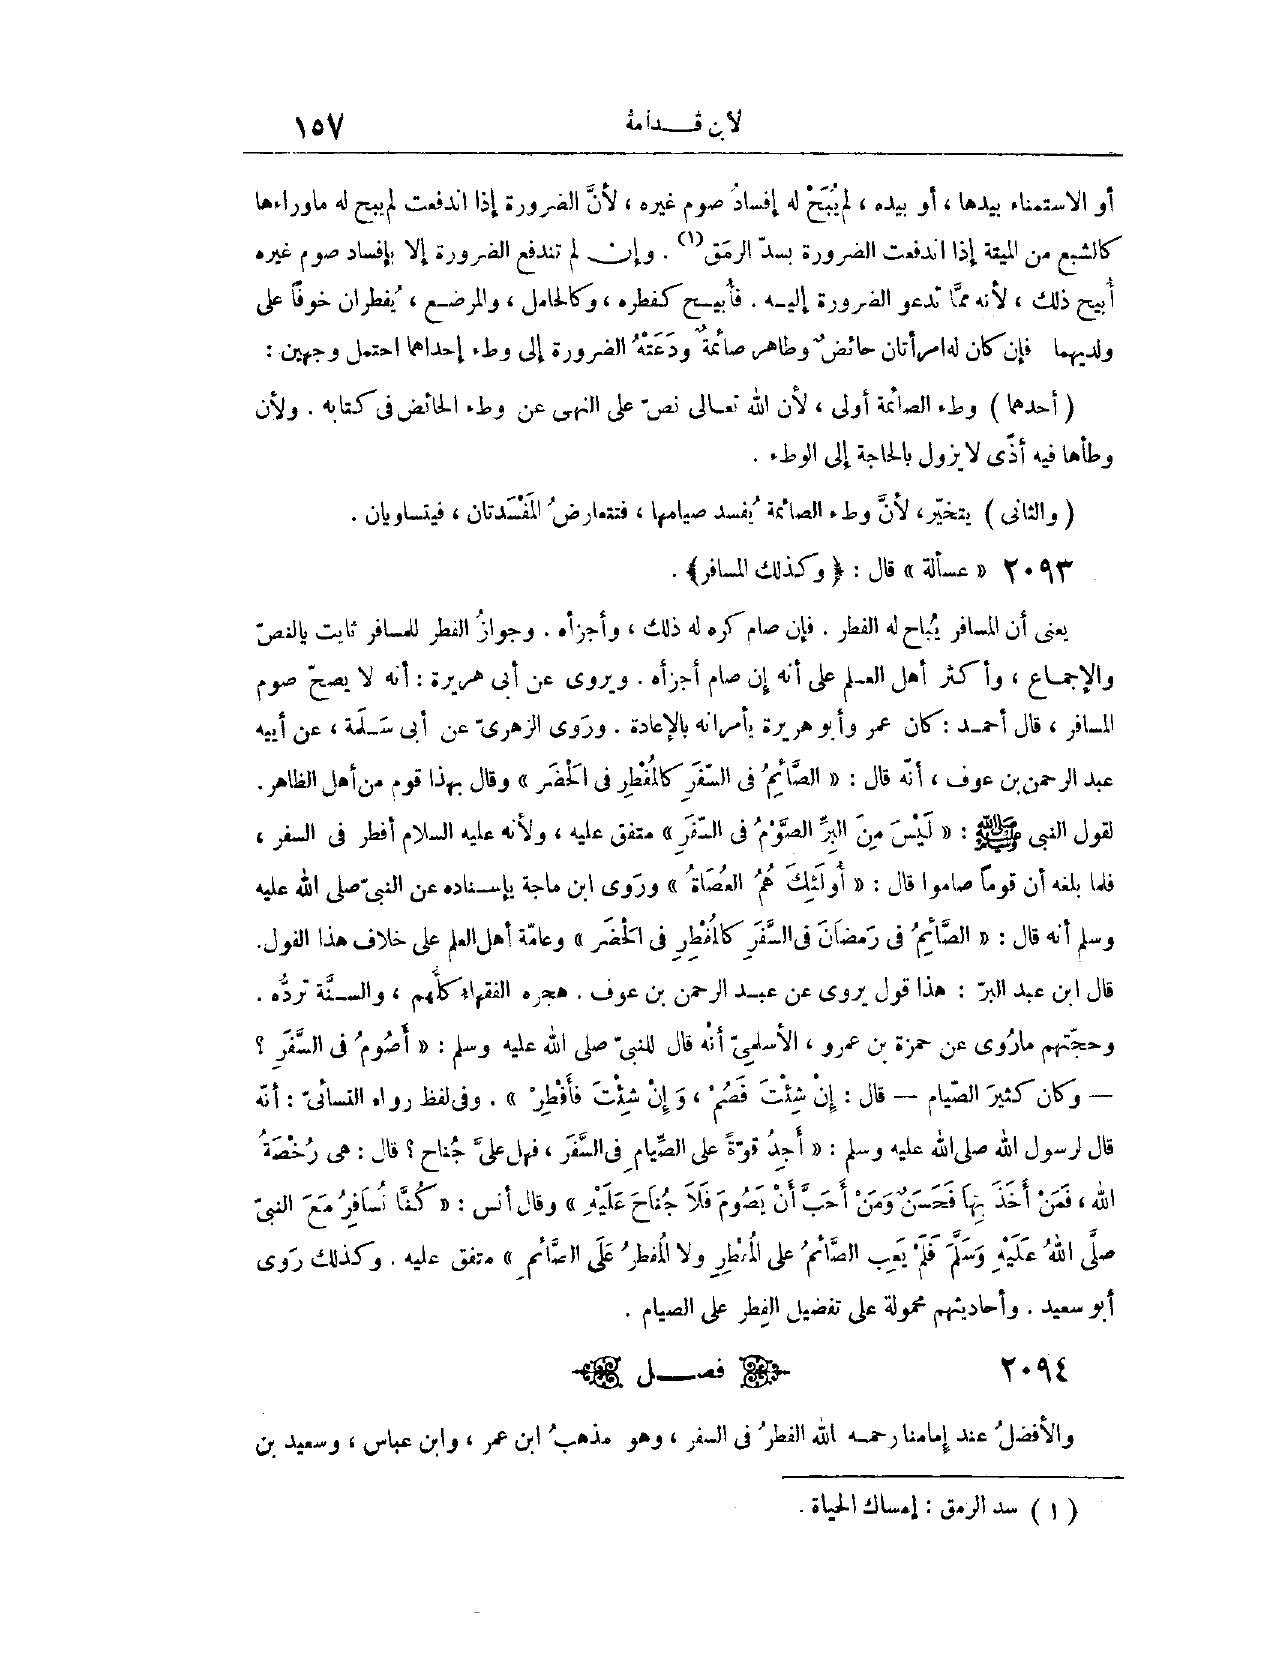 لابن قدامة ١٥٧
أو الاستمناء بيدها ، أو بيده ، لم يُبَحْ له إفسادُ صوم غيره ، لأنَّ الضرورة إذا اندفعت لم يبح له ماوراءها
كالشبع من الميتة إذا اندفعت الضرورة بسدّ الرمَق(١) . وإن لم تندفع الضرورة إلا بإفساد صوم غيره
أبيح ذلك ، لأنه ممَّا تدعو الضرورة إليه . فأبيح كفطره ، وكالحامل ، والمرضع ، يُفطران خوفاً على
ولديهما فإن كان له امرأتان حائضٌ وطاهر صائمةٌ ودَعَتْهُ الضرورة إلى وطء إحداهما احتمل وجهين :
( أحدها ) وطء الصائمة أولى ، لأن الله تعالى نصّ على النهى عن وطء الحائض فى كتابه . ولأن
وطأها فيه أذًى لا يزول بالحاجة إلى الوطء .
( والثانى ) يتخيّر، لأنَّ وطء الصائمة يُفسد صيامها ، فتتعارضُ المَفْسَدتان ، فيتساويان .
٢٠٩٣ « مسألة » قال : ﴿ وكذلك المسافر﴾ .
يعنى أن المسافر يُباح له الفطر . فإن صام كره له ذلك ، وأجزأه . وجوازُ الفطر للمسافر ثابت بالنصّ
والإجماع ، وأكثر أهل العلم على أنه إن صام أجزأه . ويروى عن أبى هريرة : أنه لا يصحّ صوم
المسافر ، قال أحمد : كان عمر وأبو هريرة يأمرانه بالإعادة . ورَوى الزهرىّ عن أبى سَلَمة ، عن أبيه
عبد الرحمن بن عوف ، أنّه قال : « الصَّائِمُ فى السّفَرِ كالمُفْطِرِ فى الحَضَر » وقال بهذا قوم من أهل الظاهر.
لقول النبى ﷺ : « لَيْسَ مِنَ البِرِّ الصَّوْمُ فى السّفَرِ » متفق عليه ، ولأنه عليه السلام أفطر فى السفر ،
فلما بلغه أن قوماً صاموا قال : « أُولَئِكَ هُمُ العُصَاةُ » ورَوى ابن ماجة بإسناده عن النبىّ صلى الله عليه
وسلم أنه قال : « الصَّائِمُ فى رَمضَانَ فى السَّفَرِ كالمُفْطِرِ فى الحَضَر » وعامّة أهل العلم على خلاف هذا القول.
قال ابن عبد البرّ : هذا قول يروى عن عبد الرحمن بن عوف . هجره الفقهاء كلُّهم ، والسنَّة تردُّه .
وحجّتهم مارُوى عن حمزة بن عمرو ، الأسلمىّ أنْه قال للنبىّ صلى الله عليه وسلم : « أَصُومُ فى السَّفَرِ ؟
— وكان كثيرَ الصّيام — قال : إنْ شِئْتَ فَصُمْ ، وَ إنْ شِئْتَ فَأَفْطِرْ » . وفى لفظ رواه النسائىّ : أنه
قال لرسول الله صلى الله عليه وسلم : « أَجِدُ قوّةً على الصِّيام فى السَّفَر ، فهل علىَّ جُناح ؟ قال : هى رُخْصَةُ
الله ، فَمَنْ أَخَذَ بِهَا فَحَسَنٌ وَمَنْ أَحَبَّ أَنْ يَصُومَ فَلَا جُنَاحَ عَلَيْهِ » وقال أنس : « كُنَّا نُسَافِرُ مَعَ النبىّ
صلَّى اللهُ عَلَيْهِ وَسَلَّمَ فَلَمْ يَعِب الصَّائمُ على المُفْطِرِ ولا المُفطرُ عَلَى الصَّائمِ » متفق عليه . وكذلك رَوى
أبو سعيد . وأحاديثهم محمولة على تفضيل الفِطر على الصيام .
٢٠٩٤ فصل
والأفضلُ عند إمامنا رحمه الله الفطرُ فى السفر ، وهو مذهبُ ابن عمر ، وابن عباس ، وسعيد بن
( ١ ) سد الرمق : إمساك الحياة .